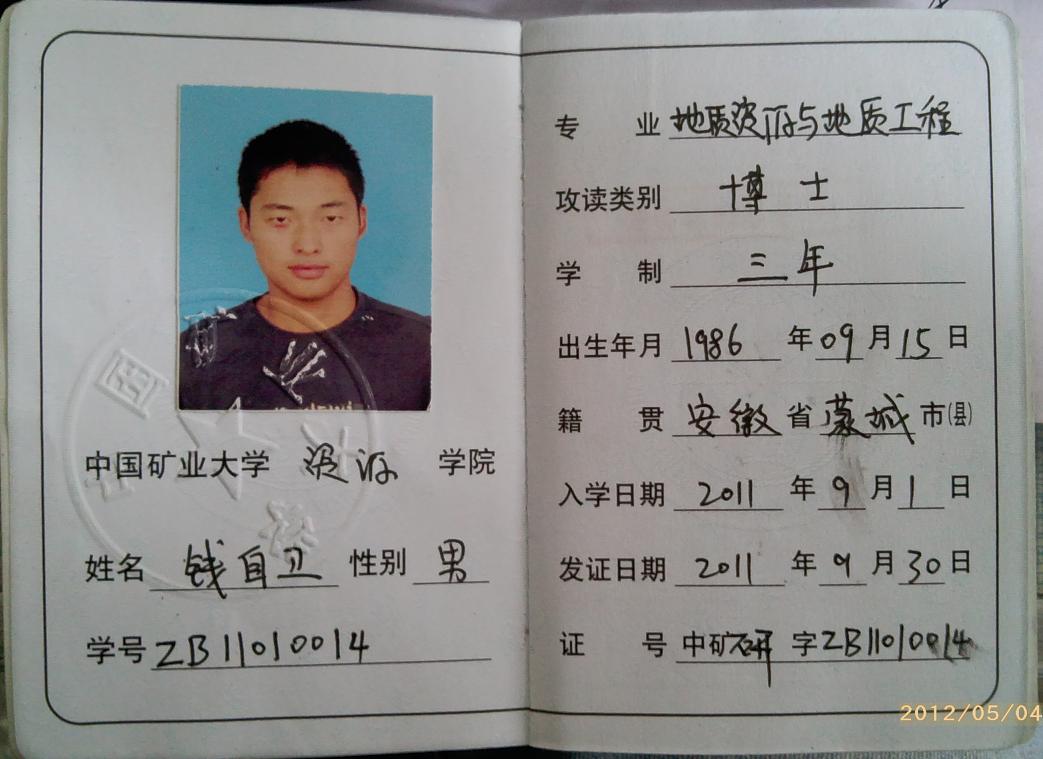 中国矿业大学 资源 学院
姓名 钱自卫 性别 男
学号 ZB11010014
专 业 地质资源与地质工程
攻读类别 博士
学 制 三年
出生年月 1986 年 09 月 15 日
籍 贯 安徽 省 蒙城 市(县)
入学日期 2011 年 9 月 1 日
发证日期 2011 年 9 月 30 日
证 号 中矿大研 字ZB11010014
2012/05/04